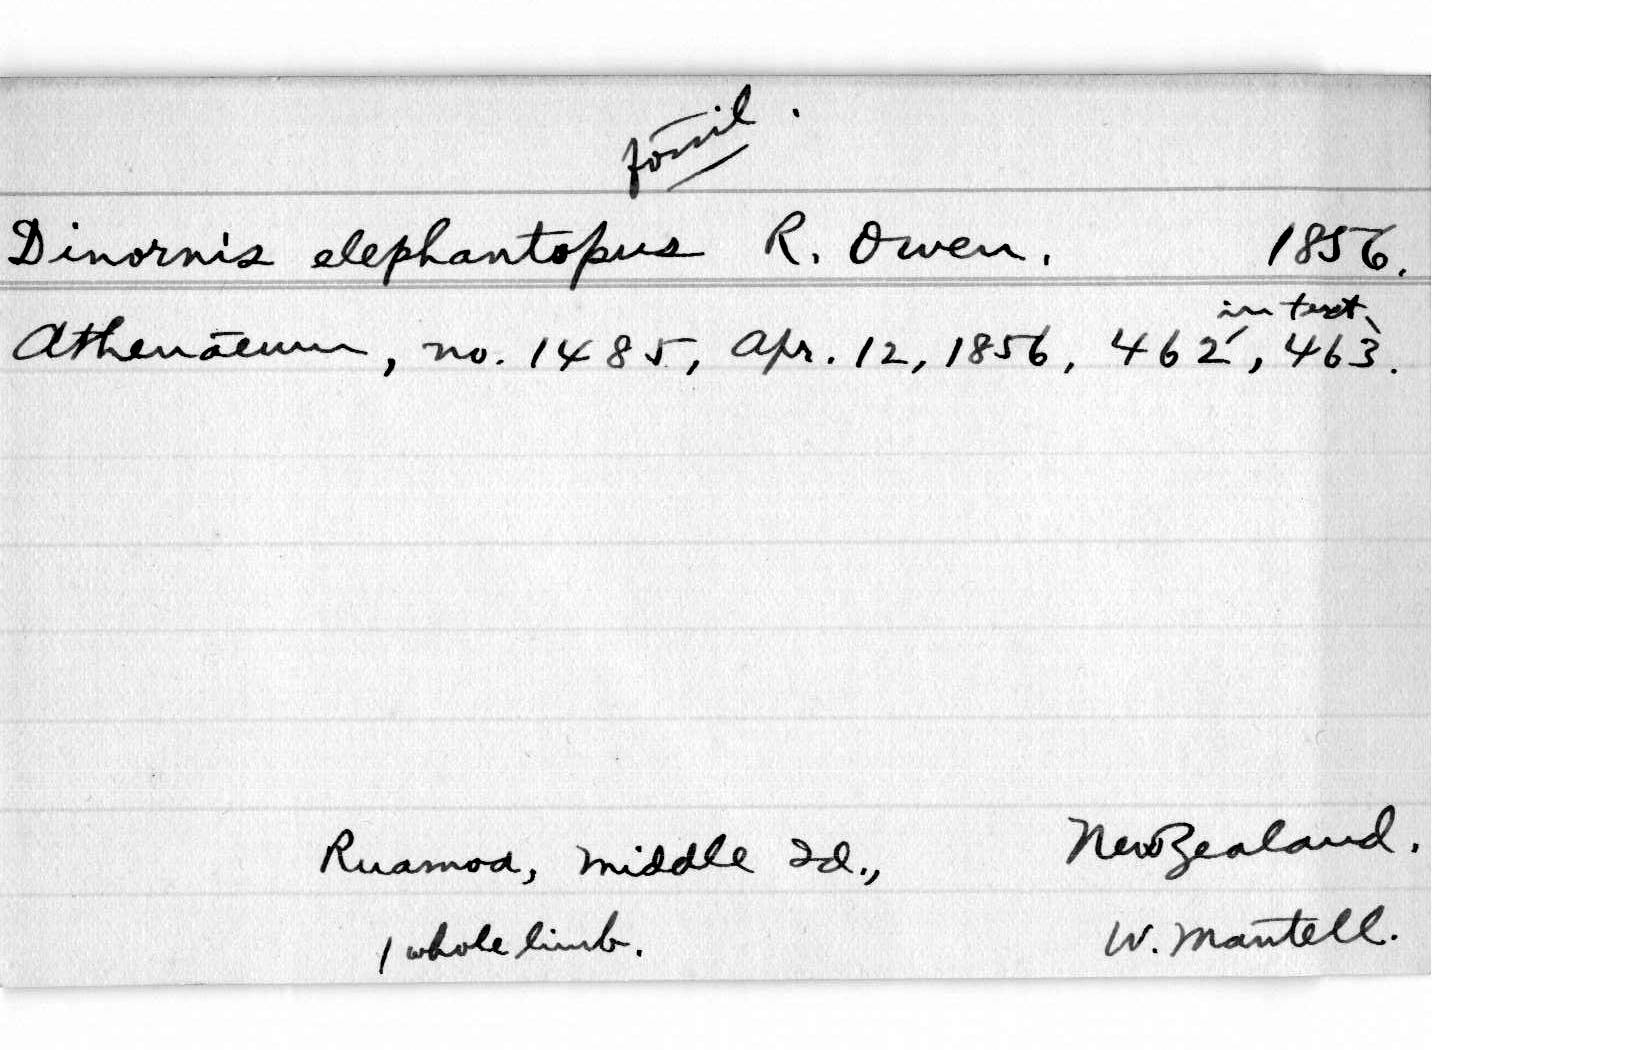 fossil.
Dinornis elephantopus R. Owen. 1856.
in text
Athenaeum, no. 1485, Apr. 12, 1856, 462, 463.
Ruamoa, Middle Id., New Zealand.
1 whole limb. W. Mantell.